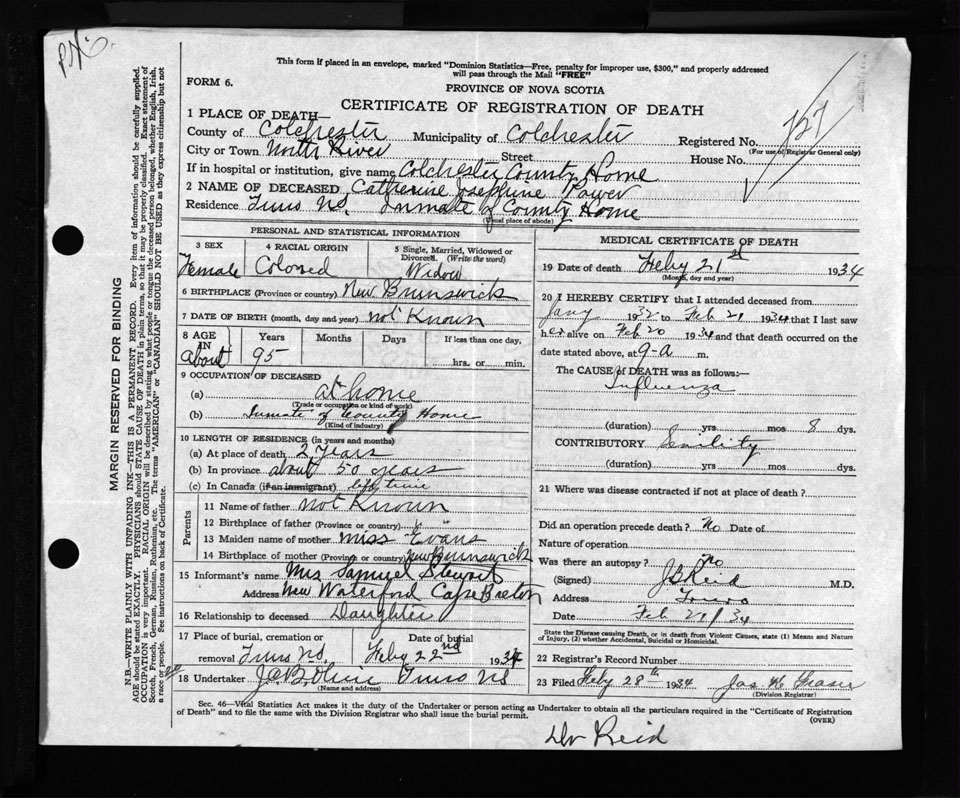 This form if placed in an envelope, marked "Dominion Statistics—Free, penalty for improper use, $300," and properly addressed
will pass through the Mail "FREE"
FORM 6.
PROVINCE OF NOVA SCOTIA
CERTIFICATE OF REGISTRATION OF DEATH
1 PLACE OF DEATH—
County of Colchester Municipality of Colchester Registered No.
(For use of Registrar General only)
City or Town North River Street House No.
If in hospital or institution, give name Colchester County Home
2 NAME OF DECEASED Catherine Josephine Power
Residence Truro NS. Inmate of County Home
(Usual place of abode)
PERSONAL AND STATISTICAL INFORMATION
3 SEX 4 RACIAL ORIGIN 5 Single, Married, Widowed or Divorced. (Write the word)
Female Colored Widow
6 BIRTHPLACE (Province or country) New Brunswick
7 DATE OF BIRTH (month, day and year) not Known
8 AGE Years Months Days If less than one day,
about 95 hrs. or min.
9 OCCUPATION OF DECEASED
(a) at home
(Trade or occupation or kind of work)
(b) Inmate of County Home
(Kind of industry)
10 LENGTH OF RESIDENCE (in years and months)
(a) At place of death 2 years
(b) In province about 50 years
(c) In Canada (if an immigrant) life time
Parents
11 Name of father not Known
12 Birthplace of father (Province or country)
13 Maiden name of mother miss Evans
14 Birthplace of mother (Province or country) New Brunswick
15 Informant's name Mrs Samuel Stewart
Address New Waterford Cape Breton
16 Relationship to deceased Daughter
17 Place of burial, cremation or Date of burial
removal Truro NS, Feby 22nd 1934
18 Undertaker Truro NS
(Name and address)
MEDICAL CERTIFICATE OF DEATH
19 Date of death Feby 21st 1934
(Month, day and year)
20 I HEREBY CERTIFY that I attended deceased from
Jany 1932 to Feb 21 1934 that I last saw
her alive on Feb 20 1934 and that death occurred on the
date stated above, at 9-a m.
The CAUSE OF DEATH was as follows:—
Influenza
(duration) yrs mos 8 dys.
CONTRIBUTORY Senility
(duration) yrs. mos dys.
21 Where was disease contracted if not at place of death?
Did an operation precede death? No Date of
Nature of operation
Was there an autopsy? no
(Signed) Reid M.D.
Address Truro
Date Feb 21/34
State the Disease causing Death, or in death from Violent Causes, state (1) Means and Nature
of Injury, (2) whether Accidental, Suicidal or Homicidal.
22 Registrar's Record Number
23 Filed Feby 28th 1934 Jas Fraser
(Division Registrar)
Sec. 46—Vital Statistics Act makes it the duty of the Undertaker or person acting as Undertaker to obtain all the particulars required in the "Certificate of Registration
of Death" and to file the same with the Division Registrar who shall issue the burial permit.
(OVER)
Dr Reid
MARGIN RESERVED FOR BINDING
N.B.—WRITE PLAINLY WITH UNFADING INK—THIS IS A PERMANENT RECORD. Every item of information should be carefully supplied.
AGE should be stated EXACTLY. PHYSICIANS should STATE CAUSE OF DEATH in plain terms, so that it may be properly classified. Exact statement of
OCCUPATION is very important. RACIAL ORIGIN will be described by stating to what people or tongue the deceased person belonged, whether English, Irish,
Scotch, French, German, Russian, Ruthenian, etc. The terms "AMERICAN" or "CANADIAN" SHOULD NOT BE USED as they express citizenship but not
a race or people. See instructions on back of Certificate.